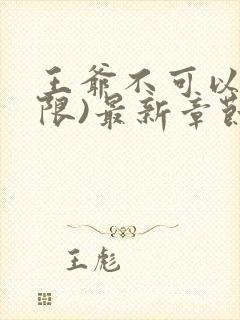 王爷不可以
限)最新章節
王彪